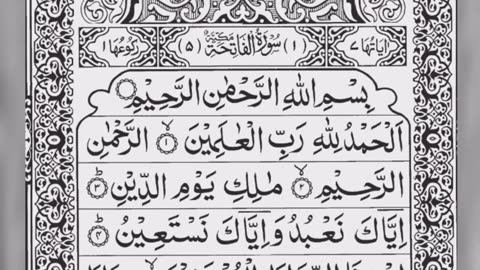 اٰیَاتُهَا ٧ (١) سُوْرَةُ الْفَاتِحَةِ مَكِّیَّةٌ (٥) رُكُوْعُهَا ١
بِسْمِ اللّٰهِ الرَّحْمٰنِ الرَّحِیْمِ
اَلْحَمْدُ لِلّٰهِ رَبِّ الْعٰلَمِیْنَ ۙ﴿١﴾ الرَّحْمٰنِ
الرَّحِیْمِ ۙ﴿٢﴾ مٰلِكِ یَوْمِ الدِّیْنِ ﴿٣﴾
اِیَّاكَ نَعْبُدُ وَ اِیَّاكَ نَسْتَعِیْنُ ﴿٤﴾